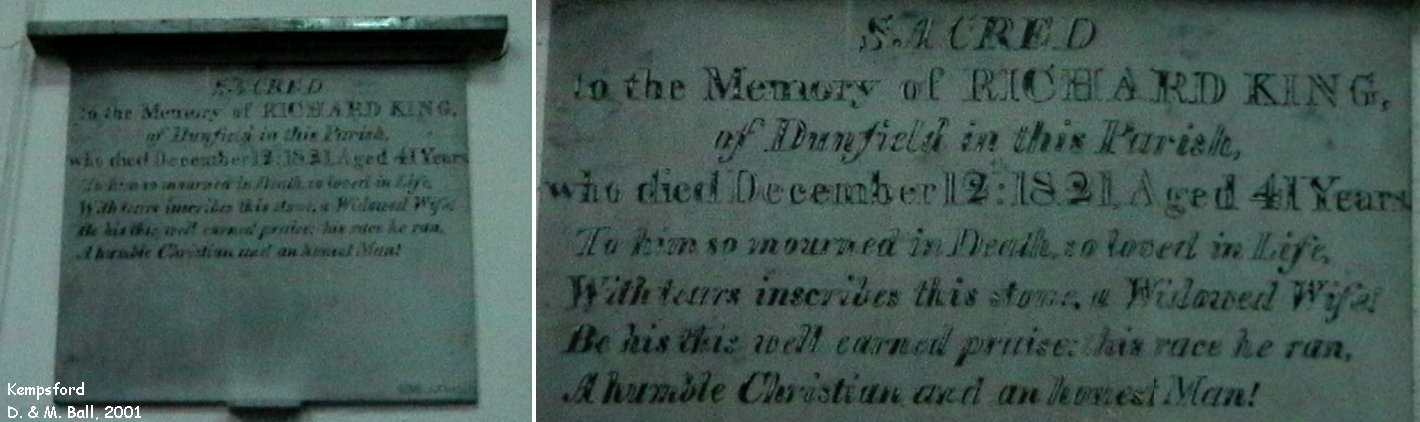 SACRED
to the Memory of RICHARD KING,
of Dunfield in this Parish,
who died December 12: 1821, Aged 41 Years
To him so mourned in Death, so loved in Life,
With tears inscribes this stone, a Widowed Wife!
Be his this well earned praise: his race he ran,
A humble Christian and an honest Man!
Kempsford
D. & M. Ball, 2001
SACRED
to the Memory of RICHARD KING,
of Dunfield in this Parish,
who died December 12: 1821, Aged 41 Years
To him so mourned in Death, so loved in Life,
With tears inscribes this stone, a Widowed Wife!
Be his this well earned praise: his race he ran,
A humble Christian and an honest Man!